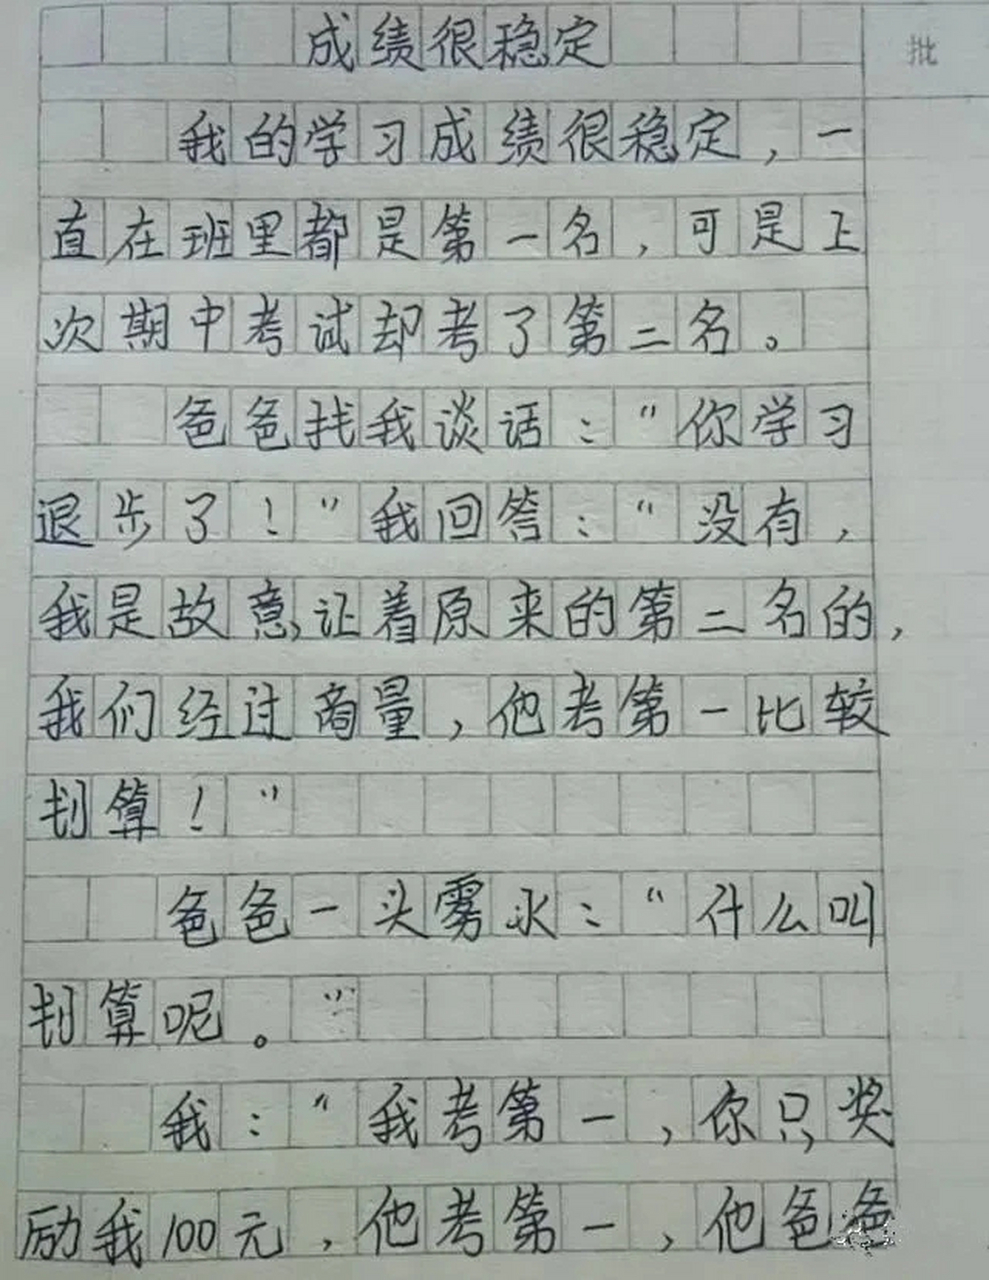 成绩很稳定
批
我的学习成绩很稳定，一
直在班里都是第一名，可是上
次期中考试却考了第二名。
爸爸找我谈话："你学习
退步了！"我回答："没有，
我是故意让着原来的第二名的，
我们经过商量，他考第一比较
划算！"
爸爸一头雾水："什么叫
划算呢。"
我："我考第一，你只奖
励我100元，他考第一，他爸爸